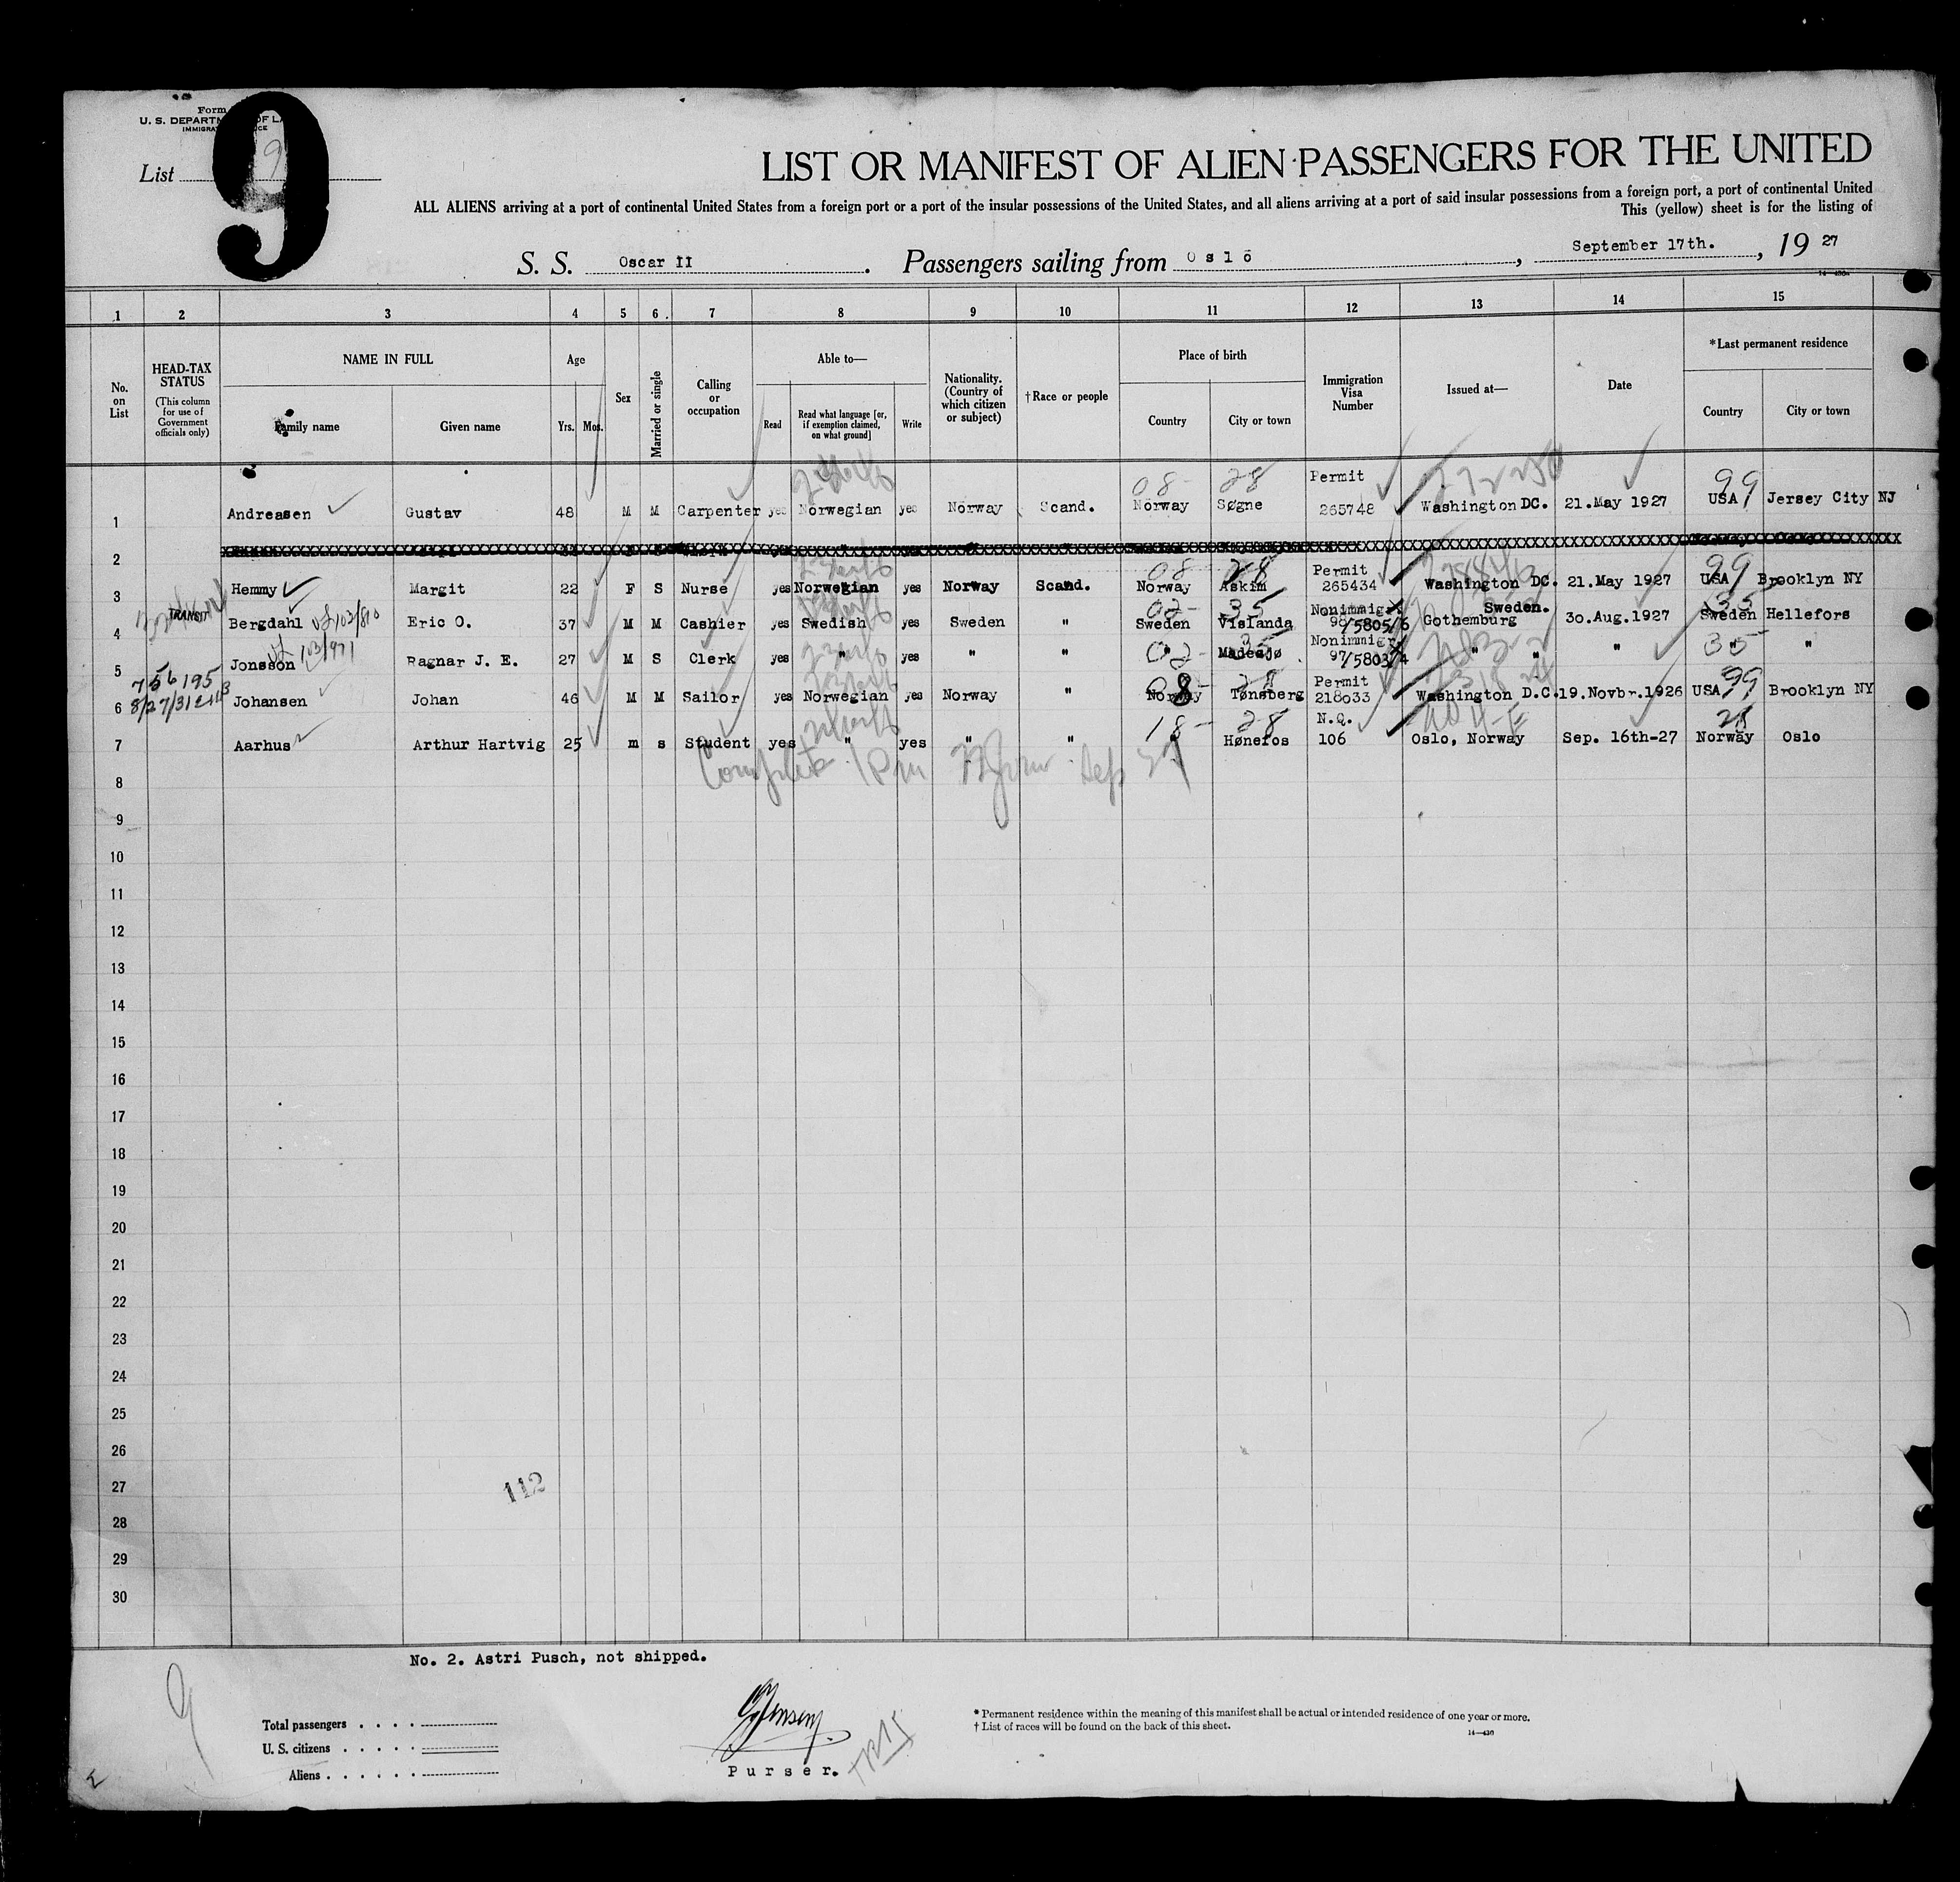 Form
U. S. DEPARTM OF LA
List 9
9
LIST OR MANIFEST OF ALIEN PASSENGERS FOR THE UNITED
ALL ALIENS arriving at a port of continental United States from a foreign port or a port of the insular possessions of the United States, and all aliens arriving at a port of said insular possessions from a foreign port, a port of continental United
This (yellow) sheet is for the listing of
S. S. Oscar II. Passengers sailing from Oslo, September 17th., 19 27
1 2 3 4 5 6 7 8 9 10 11 12 13 14 15
No. on List
HEAD-TAX STATUS (This column for use of Government officials only)
NAME IN FULL
Family name Given name
Age Yrs. Mos.
Sex
Married or single
Calling or occupation
Able to—
Read Read what language [or, if exemption claimed, on what ground] Write
Nationality. (Country of which citizen or subject)
†Race or people
Place of birth
Country City or town
Immigration Visa Number
Issued at—
Date
*Last permanent residence
Country City or town
1 Andreasen Gustav 48 M M Carpenter yes Norwegian yes Norway Scand. 08- Norway 28 Søgne Permit 265748 Washington DC. 21.May 1927 99 USA Jersey City NJ
2
3 Hemmy Margit 22 F S Nurse yes Norwegian yes Norway Scand. 08 Norway 28 Askim Permit 265434 Washington DC. 21.May 1927 99 USA Brooklyn NY
4 TRANSIT Bergdahl Eric O. 37 M M Cashier yes Swedish yes Sweden " 02- Sweden 35 Vislanda Nonimmigr. 98/5805/6 Gothemburg Sweden. 30.Aug.1927 35 Sweden Hellefors
5 Jonsson Ragnar J. E. 27 M S Clerk yes " yes " " 02- " 35 Madesjø Nonimmigr. 97/5803/4 " " " 35 " "
6 756195 8/27/31 Johansen Johan 46 M M Sailor yes Norwegian yes Norway " 08- Norway 28 Tønsberg Permit 218033 Washington D.C. 19.Novbr.1926 99 USA Brooklyn NY
7 Aarhus Arthur Hartvig 25 m s Student yes " yes " " 18- " 28 Hønefos N.Q. 106 Oslo, Norway Sep. 16th-27 28 Norway Oslo
8
9
10
11
12
13
14
15
16
17
18
19
20
21
22
23
24
25
26
27
28
29
30
112
No. 2. Astri Pusch, not shipped.
9
Total passengers . . . .
U. S. citizens . . . . .
Aliens . . . . . .
Purser.
* Permanent residence within the meaning of this manifest shall be actual or intended residence of one year or more.
† List of races will be found on the back of this sheet.
14—430